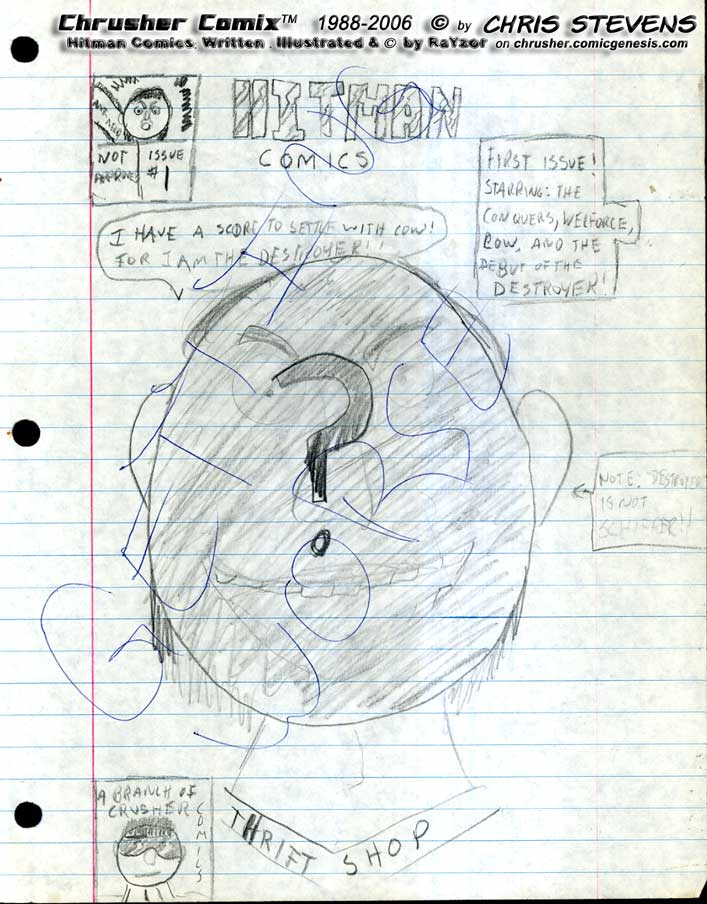 Chrusher Comix™ 1988-2006 © by CHRIS STEVENS
Hitman Comics, Written, Illustrated & © by RaYzor on chrusher.comicgenesis.com
HITMAN
COMICS
NOT
ISSUE
#1
FIRST ISSUE!
STARRING: THE
CONQUERS, WELFORCE,
COW, AND THE
DEBUT OF THE
DESTROYER!
I HAVE A SCORE TO SETTLE WITH COW!
FOR I AM THE DESTROYER!!
?
NOTE: DESTROYER
IS NOT
A BRANCH OF
CRUSHER
COMICS
THRIFT SHOP